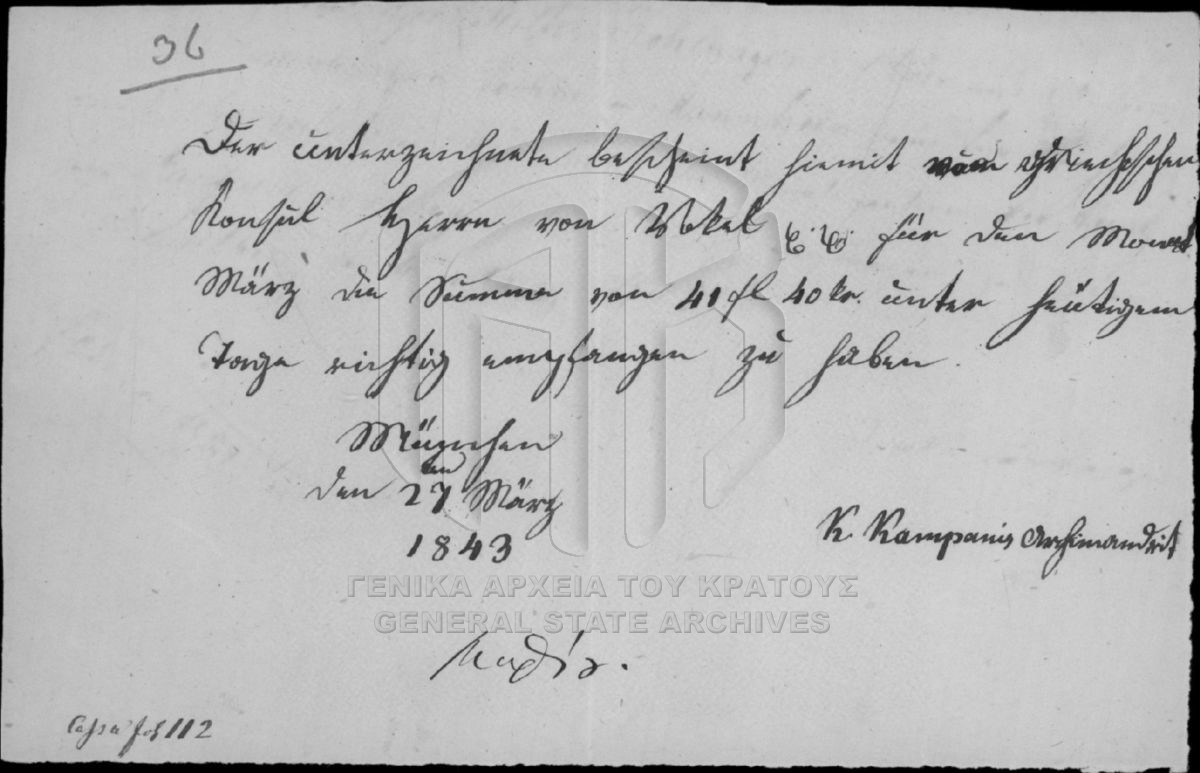 36
Der unterzeichnete bescheint hiemit vom Griechischen
Konsul Herrn von für den Monat
März die Summe von 41 fl 40 kr. unter heütigem
Tage richtig empfangen zu haben.
München
den 27 ten März
1843
K. Kampanis Archimandrit
ΓΕΝΙΚΑ ΑΡΧΕΙΑ ΤΟΥ ΚΡΑΤΟΥΣ
GENERAL STATE ARCHIVES
Cassa fol 112